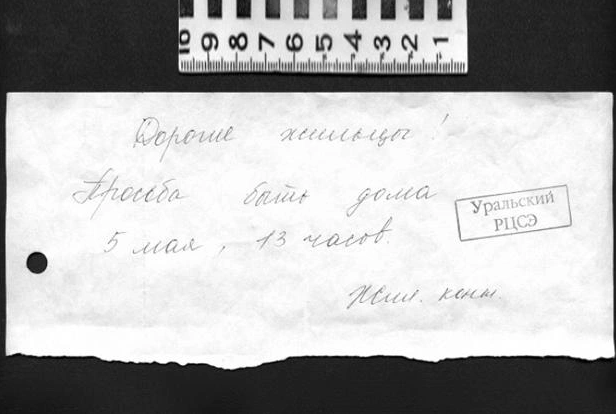 10 9 8 7 6 5 4 3 2 1
Дорогие жильцы!
Просьба быть дома
5 мая, 13 часов.
Жил. конт.
Уральский
РЦСЭ